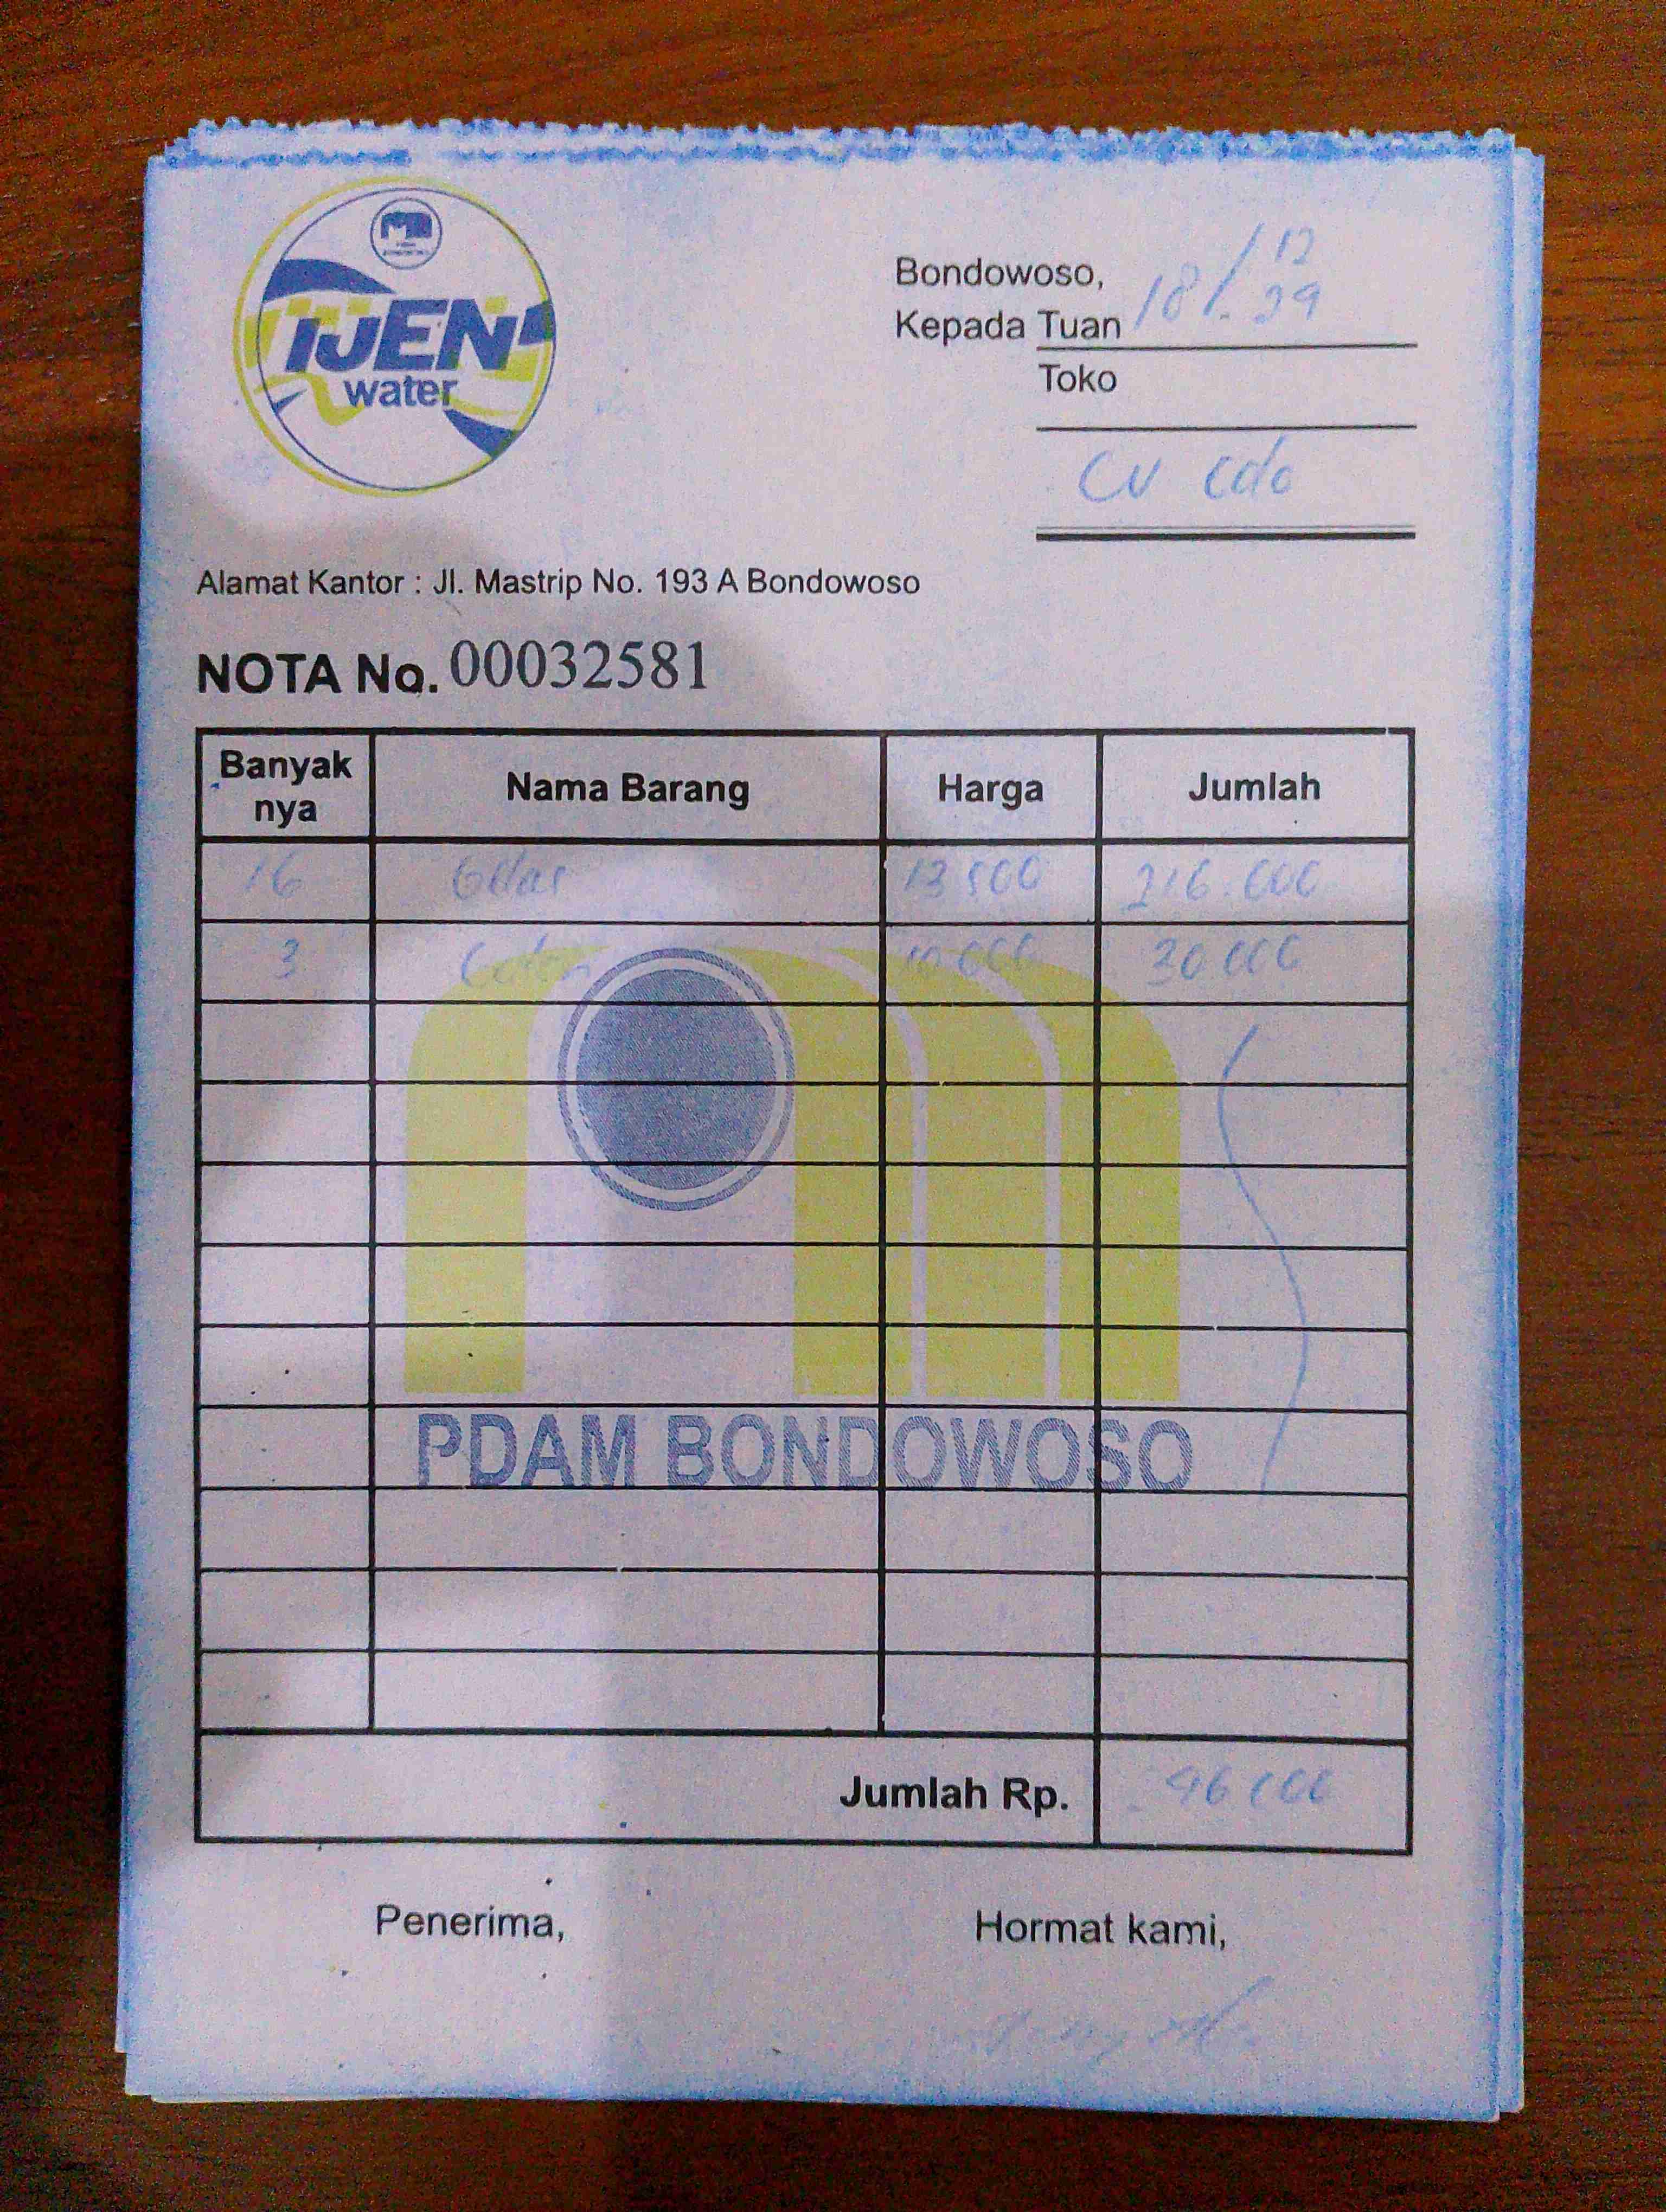 IJEN
water
Bondowoso, 18/12
Kepada Tuan
Toko
CV
Alamat Kantor : Jl. Mastrip No. 193 A Bondowoso
NOTA No. 00032581
Banyak nya Nama Barang Harga Jumlah
16 Gelas 13 500 216.000
3 10.000 30.000
PDAM BONDOWOSO
Jumlah Rp.
Penerima, Hormat kami,